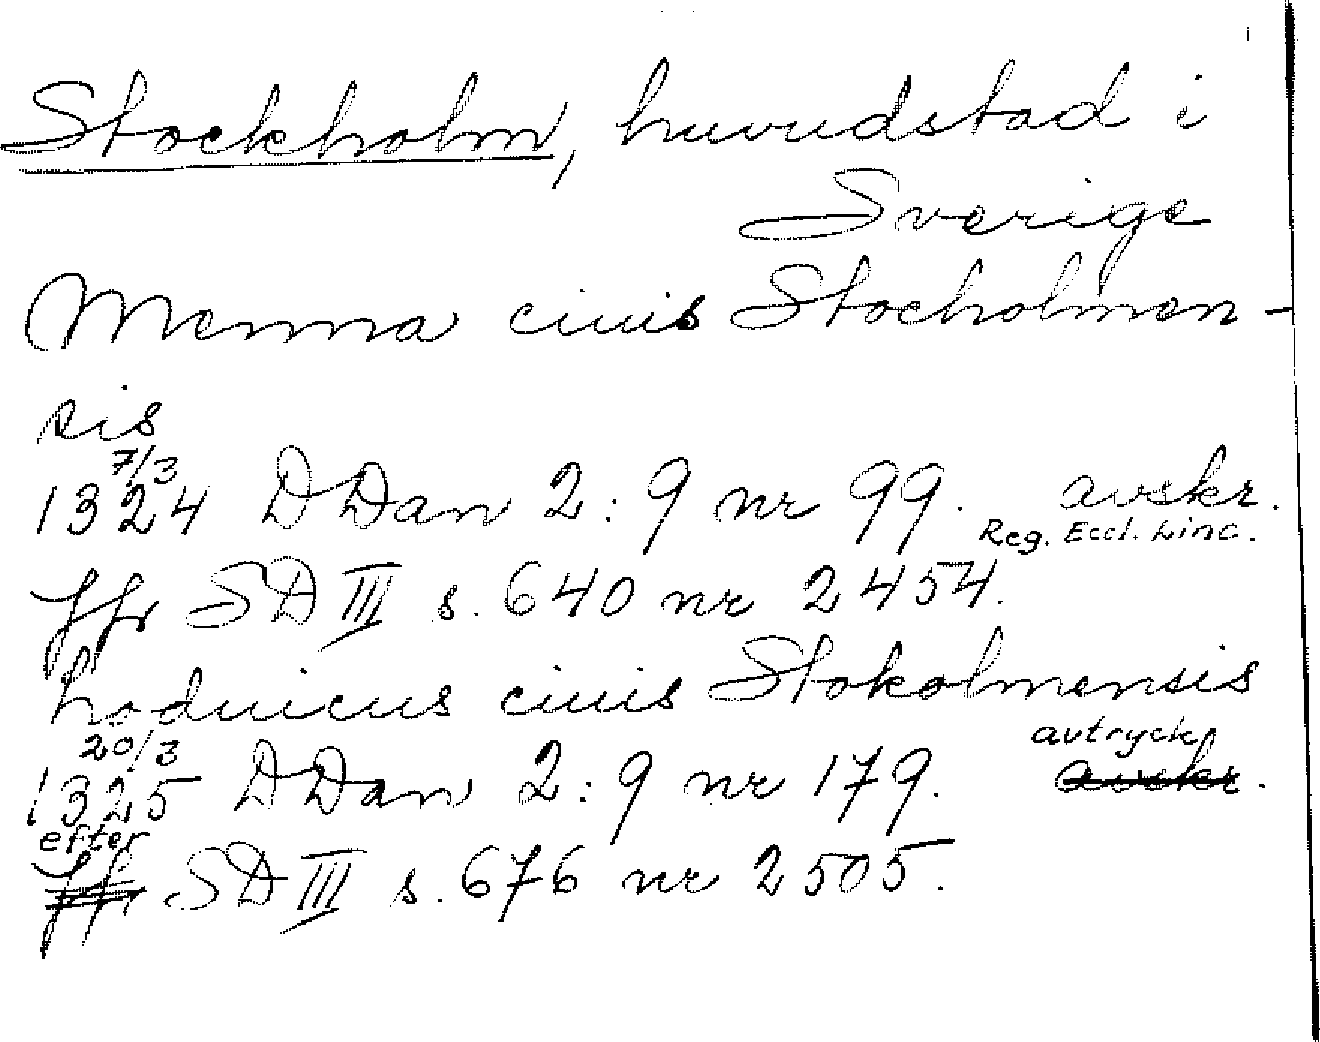 Stockholm, huvudstad i
Sverige
Menna ciuis Stocholmen-
sis
7/3
1324 DDan 2:9 nr 99. avskr.
Reg. Eccl. Linc.
jfr SD III s. 640 nr 2454.
Loduicus ciuis Stokolmensis
20/3 avtryck
1325 DDan 2:9 nr 179. avskr.
efter
jfr SD III s. 676 nr 2505.